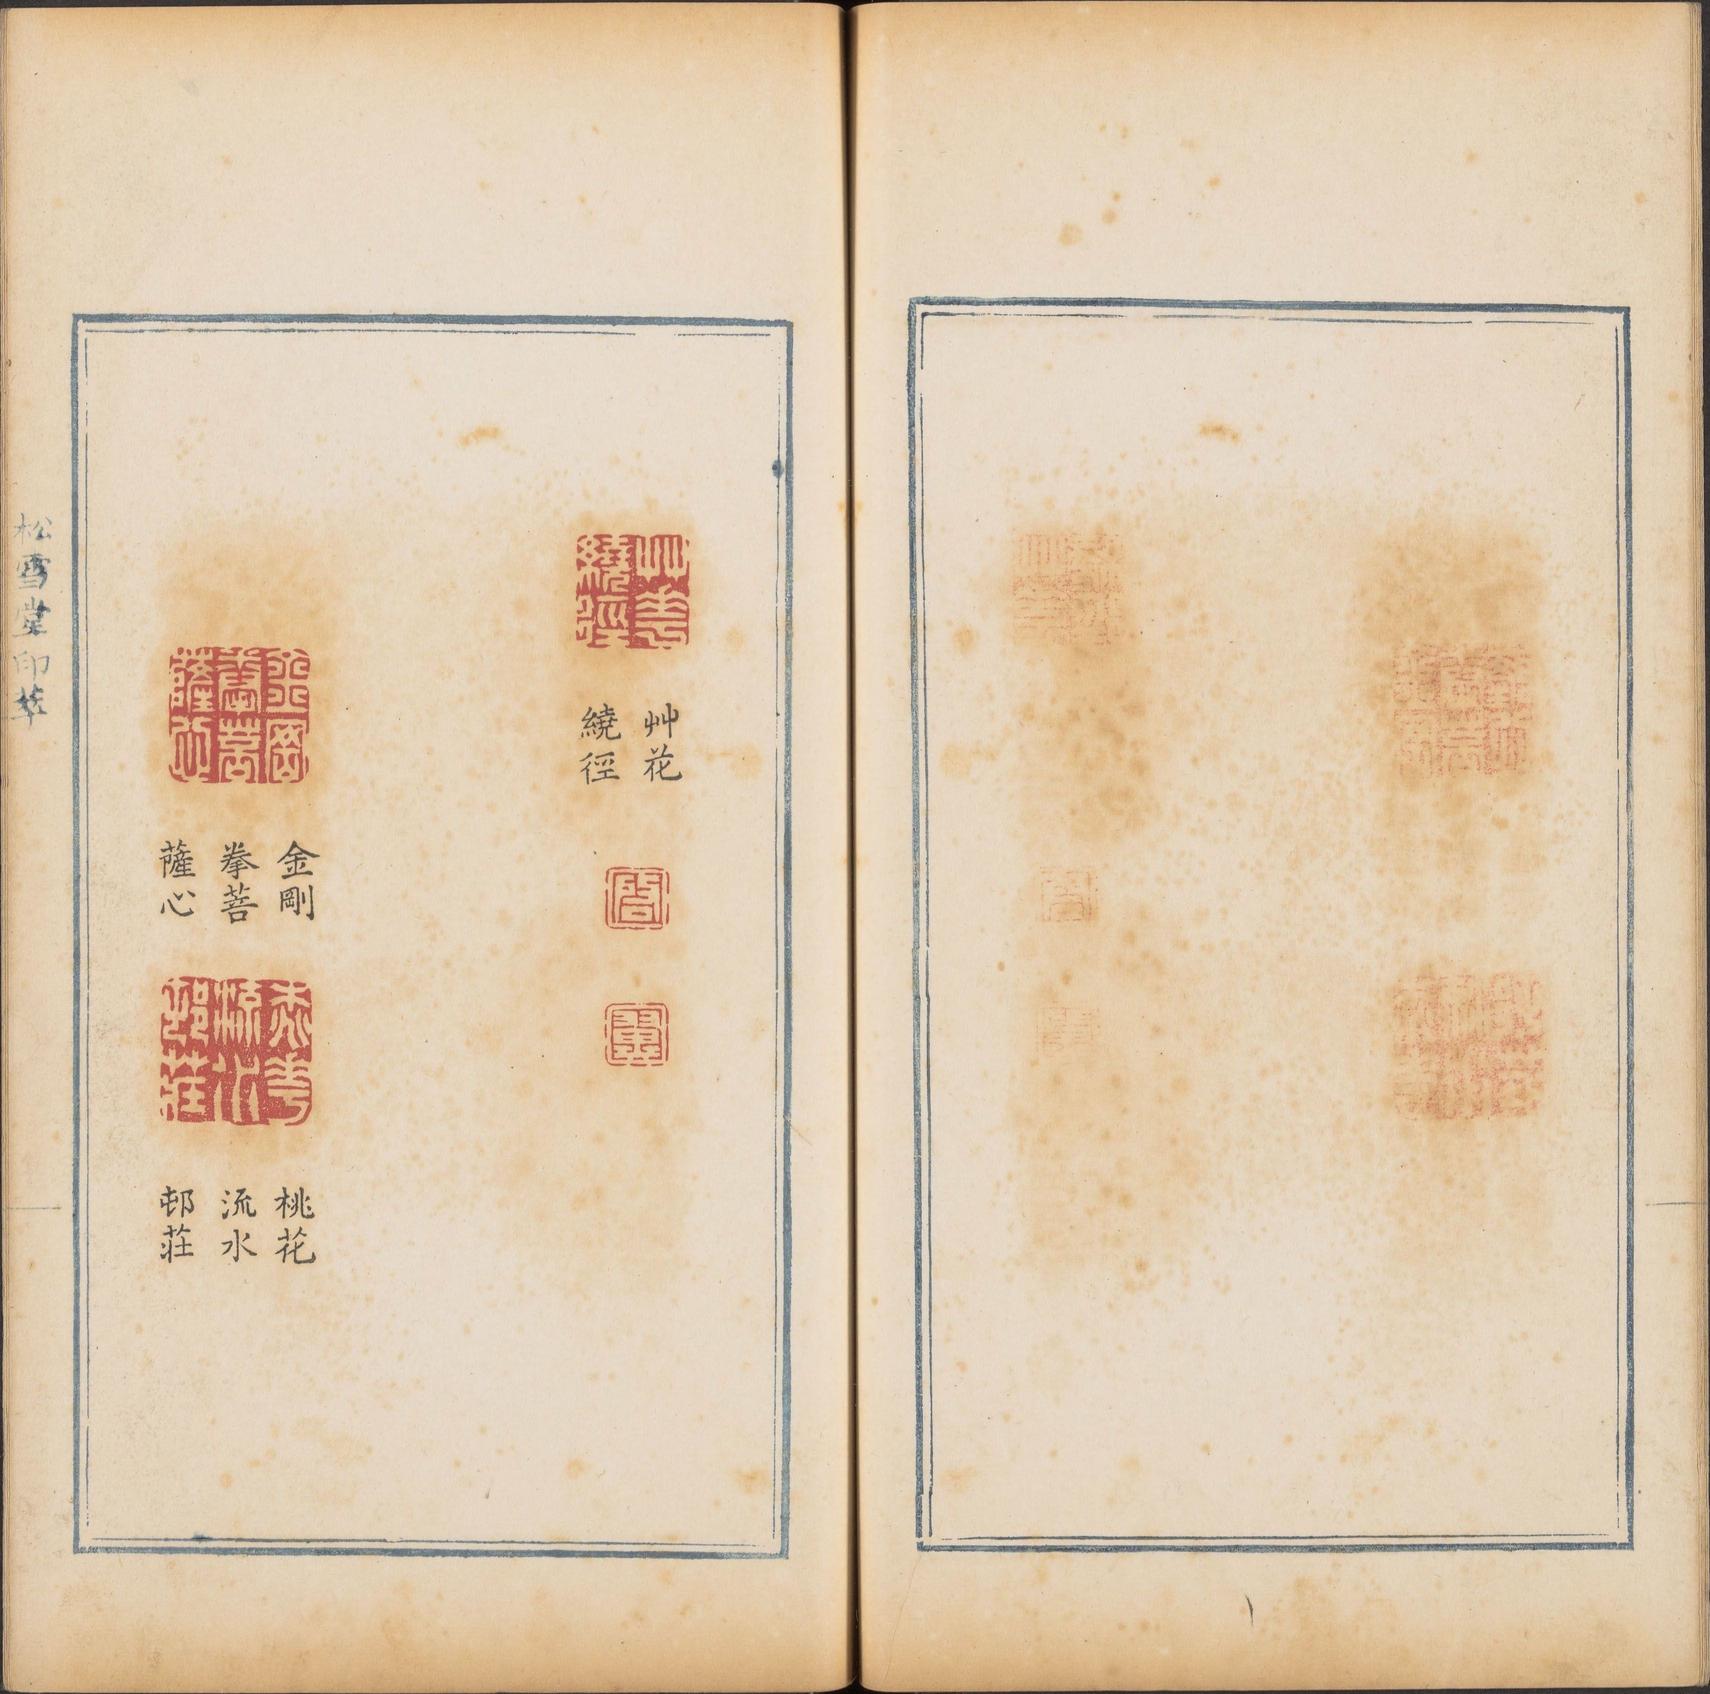 艸花
繞徑
金剛
拳菩
薩心
桃花
流水
邨莊
松雪堂印萃